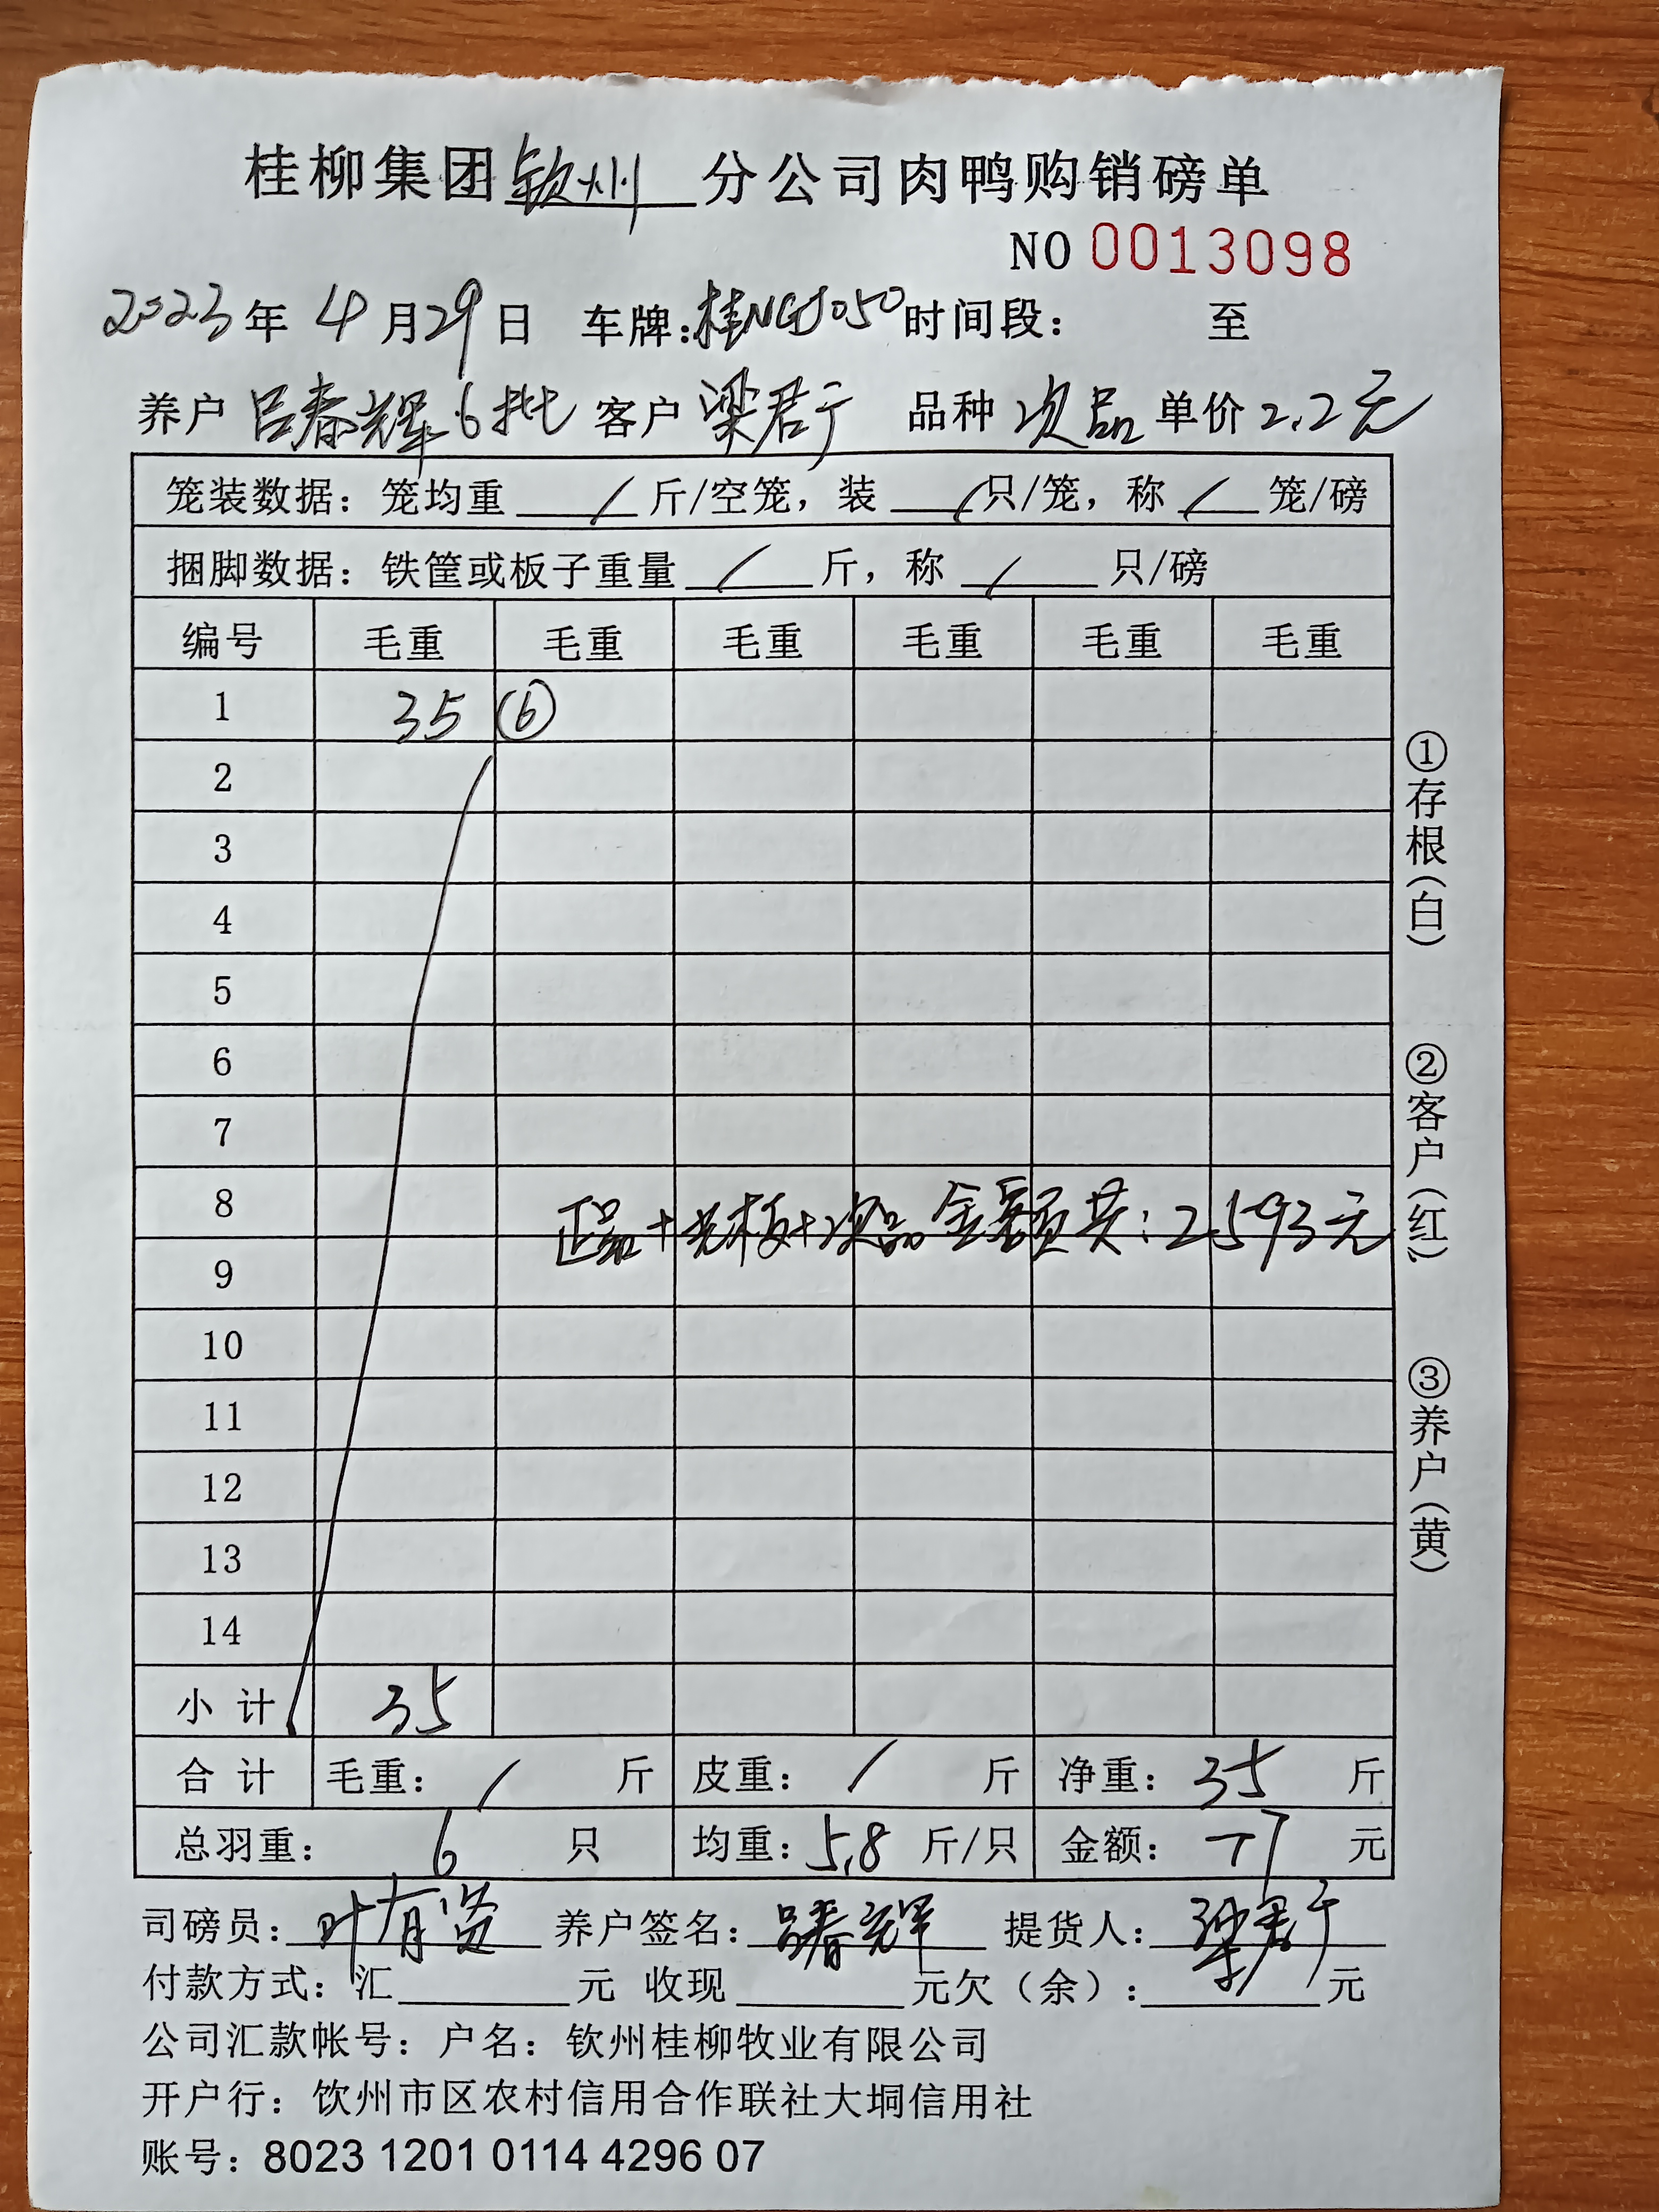 桂柳集团钦州分公司肉鸭购销磅单
NO 0013098
2023年4月29日 车牌:桂NGJ050时间段: 至
养户 吕春辉6批 客户 梁君于 品种 次品 单价2.2元
笼装数据:笼均重 / 斤/空笼,装 / 只/笼,称 / 笼/磅
捆脚数据:铁筐或板子重量 / 斤,称 / 只/磅
编号 毛重 毛重 毛重 毛重 毛重 毛重
1 35 ⑥
2
3
4
5
6
7
8
正品+光板+次品金额共:2593元
9
10
11
12
13
14
小计 35
合计 毛重: / 斤 皮重: / 斤 净重: 35 斤
总羽重: 6 只 均重:5.8 斤/只 金额: 77 元
司磅员:叶有贤 养户签名:吕春辉 提货人:梁君于
付款方式:汇 元 收现 元欠(余): 元
公司汇款帐号:户名:钦州桂柳牧业有限公司
开户行:钦州市区农村信用合作联社大垌信用社
账号:8023 1201 0114 4296 07
①存根(白)
②客户(红)
③养户(黄)